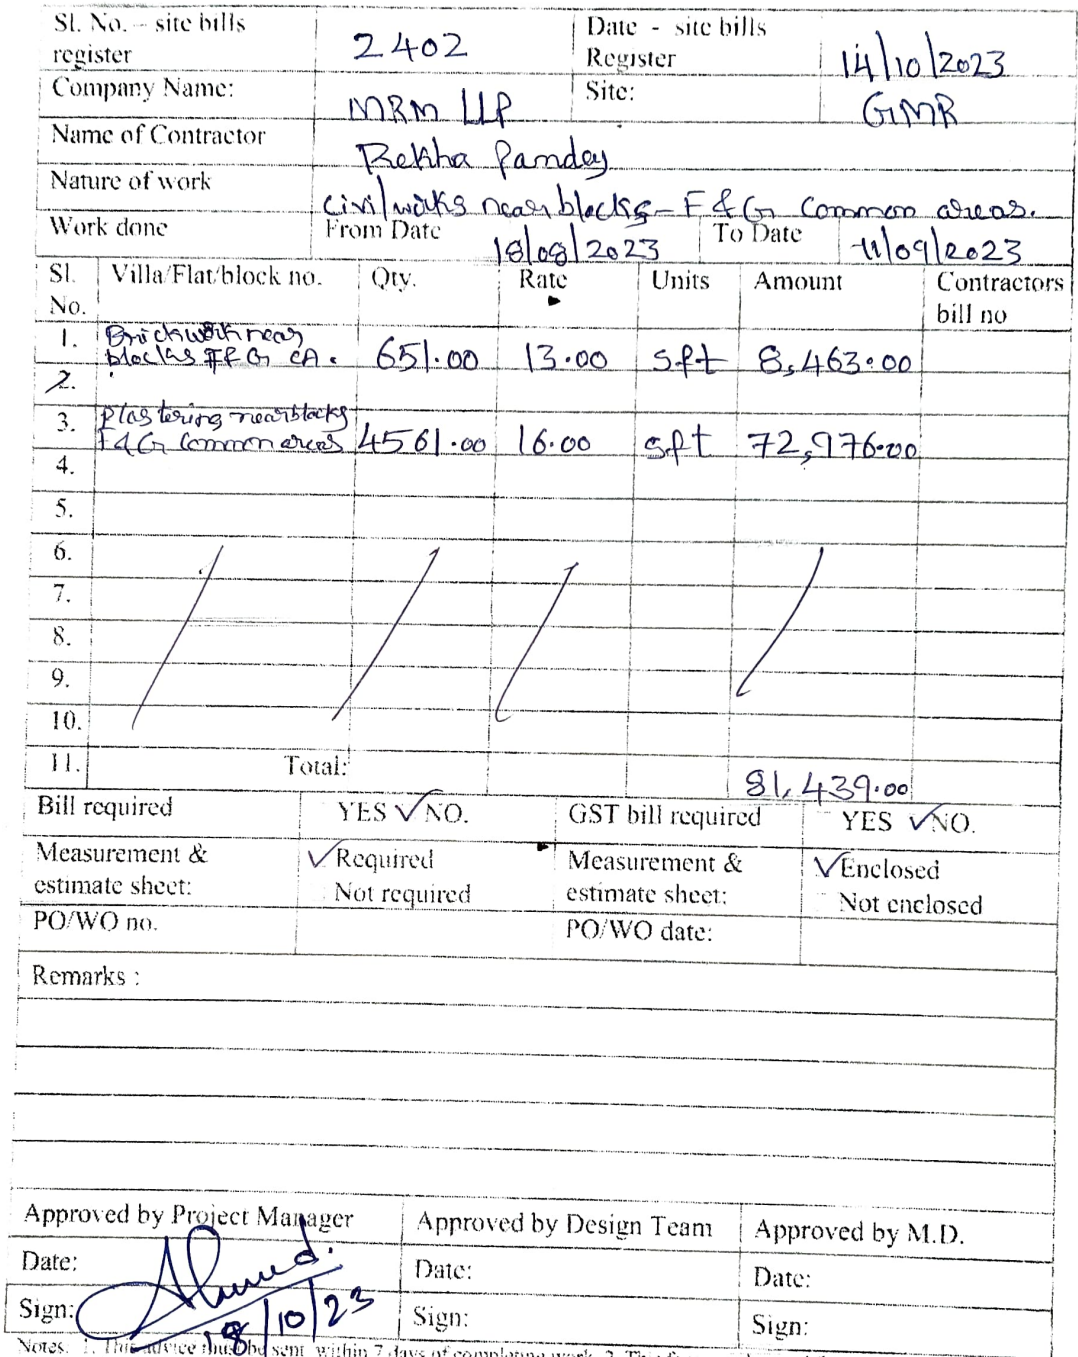 Sl. No. – site bills register 2402 Date - site bills Register 14/10/2023
Company Name: MRM LLP Site: GMR
Name of Contractor Rekha Pandey
Nature of work Civil works near blocks - F & G Common areas.
Work done From Date 18/08/2023 To Date 11/09/2023
Sl. No. Villa/Flat/block no. Qty. Rate Units Amount Contractors bill no
1. Brickwork near blocks F & G CA. 651.00 13.00 sft 8,463.00
2.
3. Plastering near blocks F & G Common areas 4561.00 16.00 sft 72,976.00
4.
5.
6.
7.
8.
9.
10.
11. Total: 81,439.00
Bill required YES ✓NO. GST bill required YES ✓NO.
Measurement & estimate sheet: ✓Required Not required Measurement & estimate sheet: ✓Enclosed Not enclosed
PO/WO no. PO/WO date:
Remarks :
Approved by Project Manager Approved by Design Team Approved by M.D.
Date: Date: Date:
Sign: 18/10/23 Sign: Sign:
Notes: 1. This advice must be sent within 7 days of completing work. 2.